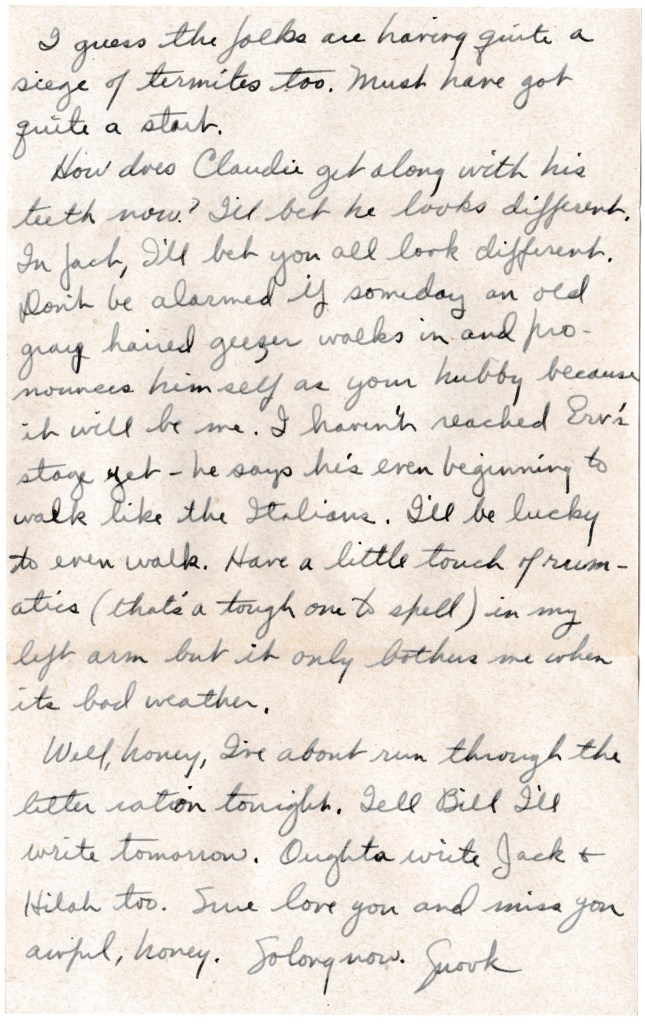 I guess the folks are having quite a
siege of termites too. Must have got
quite a start.
How does Claudie get along with his
teeth now? I'll bet he looks different.
In fact, I'll bet you all look different.
Don't be alarmed if someday an old
gray haired geezer walks in and pro-
nounces himself as your hubby because
it will be me. I haven't reached Erv's
stage yet - he says he's even beginning to
walk like the Italians. I'll be lucky
to even walk. Have a little touch of rum-
atics (that's a tough one to spell) in my
left arm but it only bothers me when
its bad weather.
Well, honey, I've about run through the
letter ration tonight. Tell Bill I'll
write tomorrow. Oughta write Jack &
Hilah too. Sure love you and miss you
awful, honey. So long now. Snook